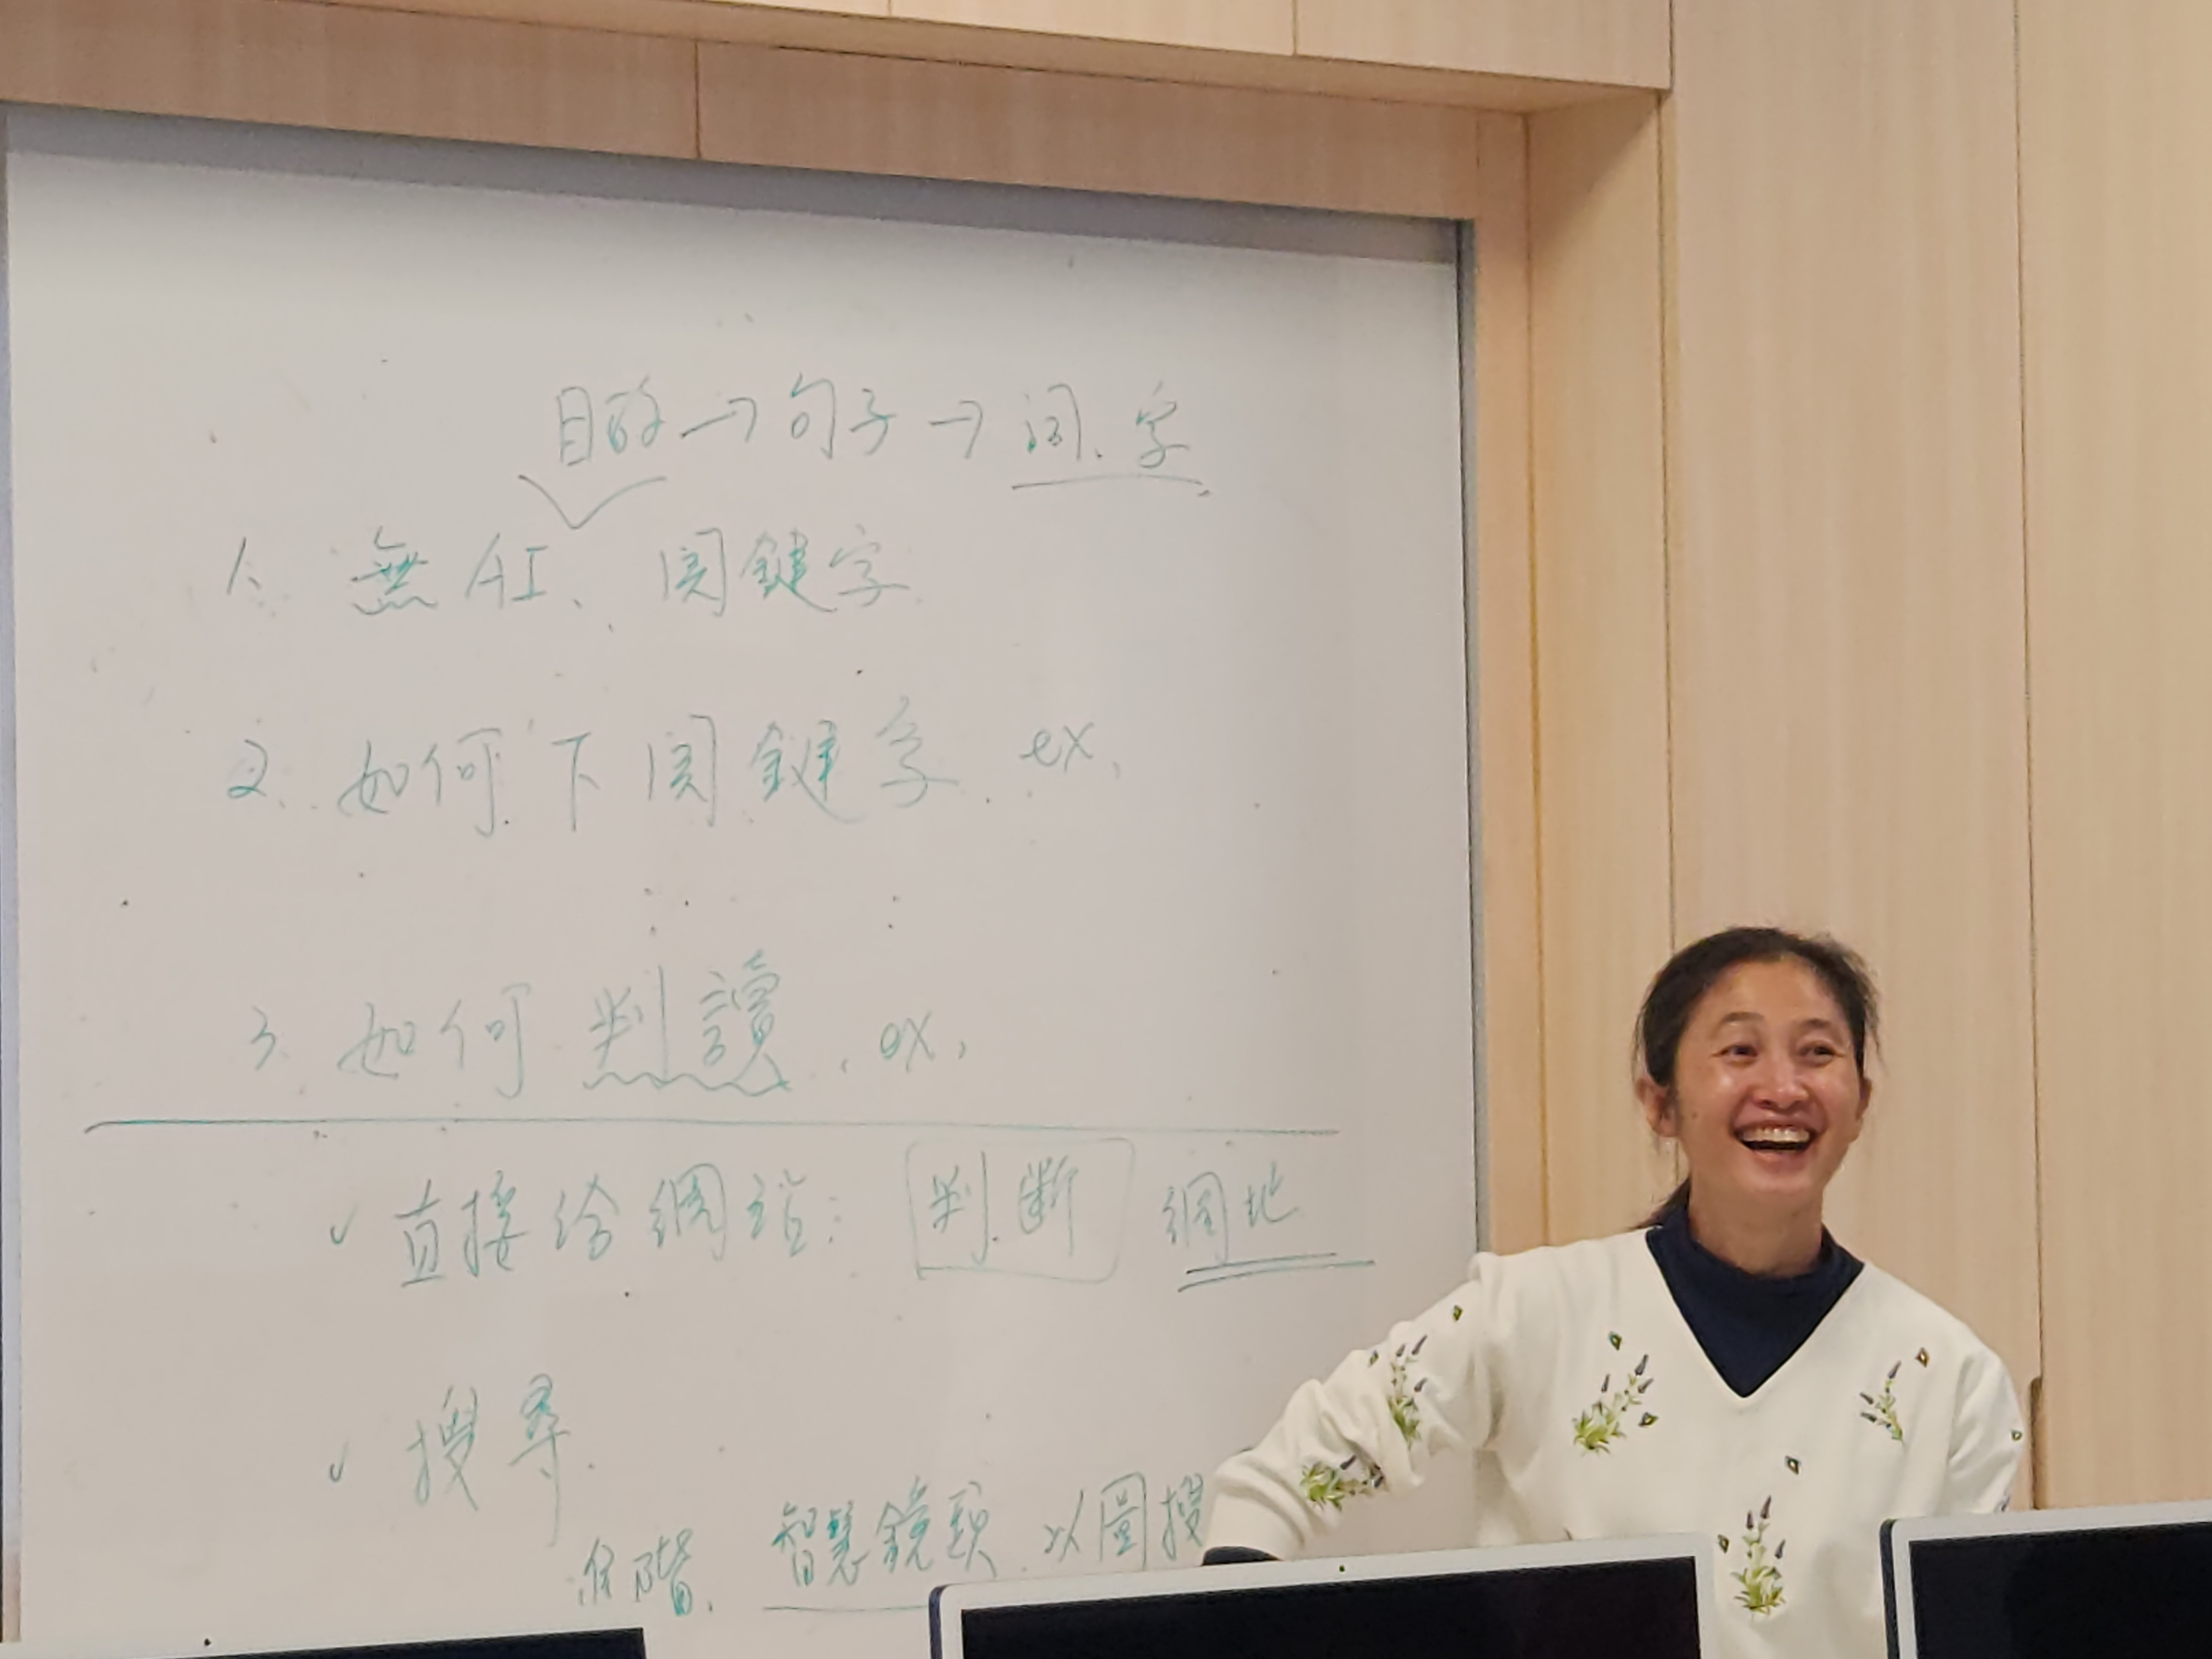 目的→句子→詞、字
1. 無AI、関鍵字
2. 如何下関鍵字 ex.
3. 如何判讀. ex.
✓ 直接给網站: 判斷 網址
✓ 搜尋
進階. 智慧鏡頭. 以圖搜